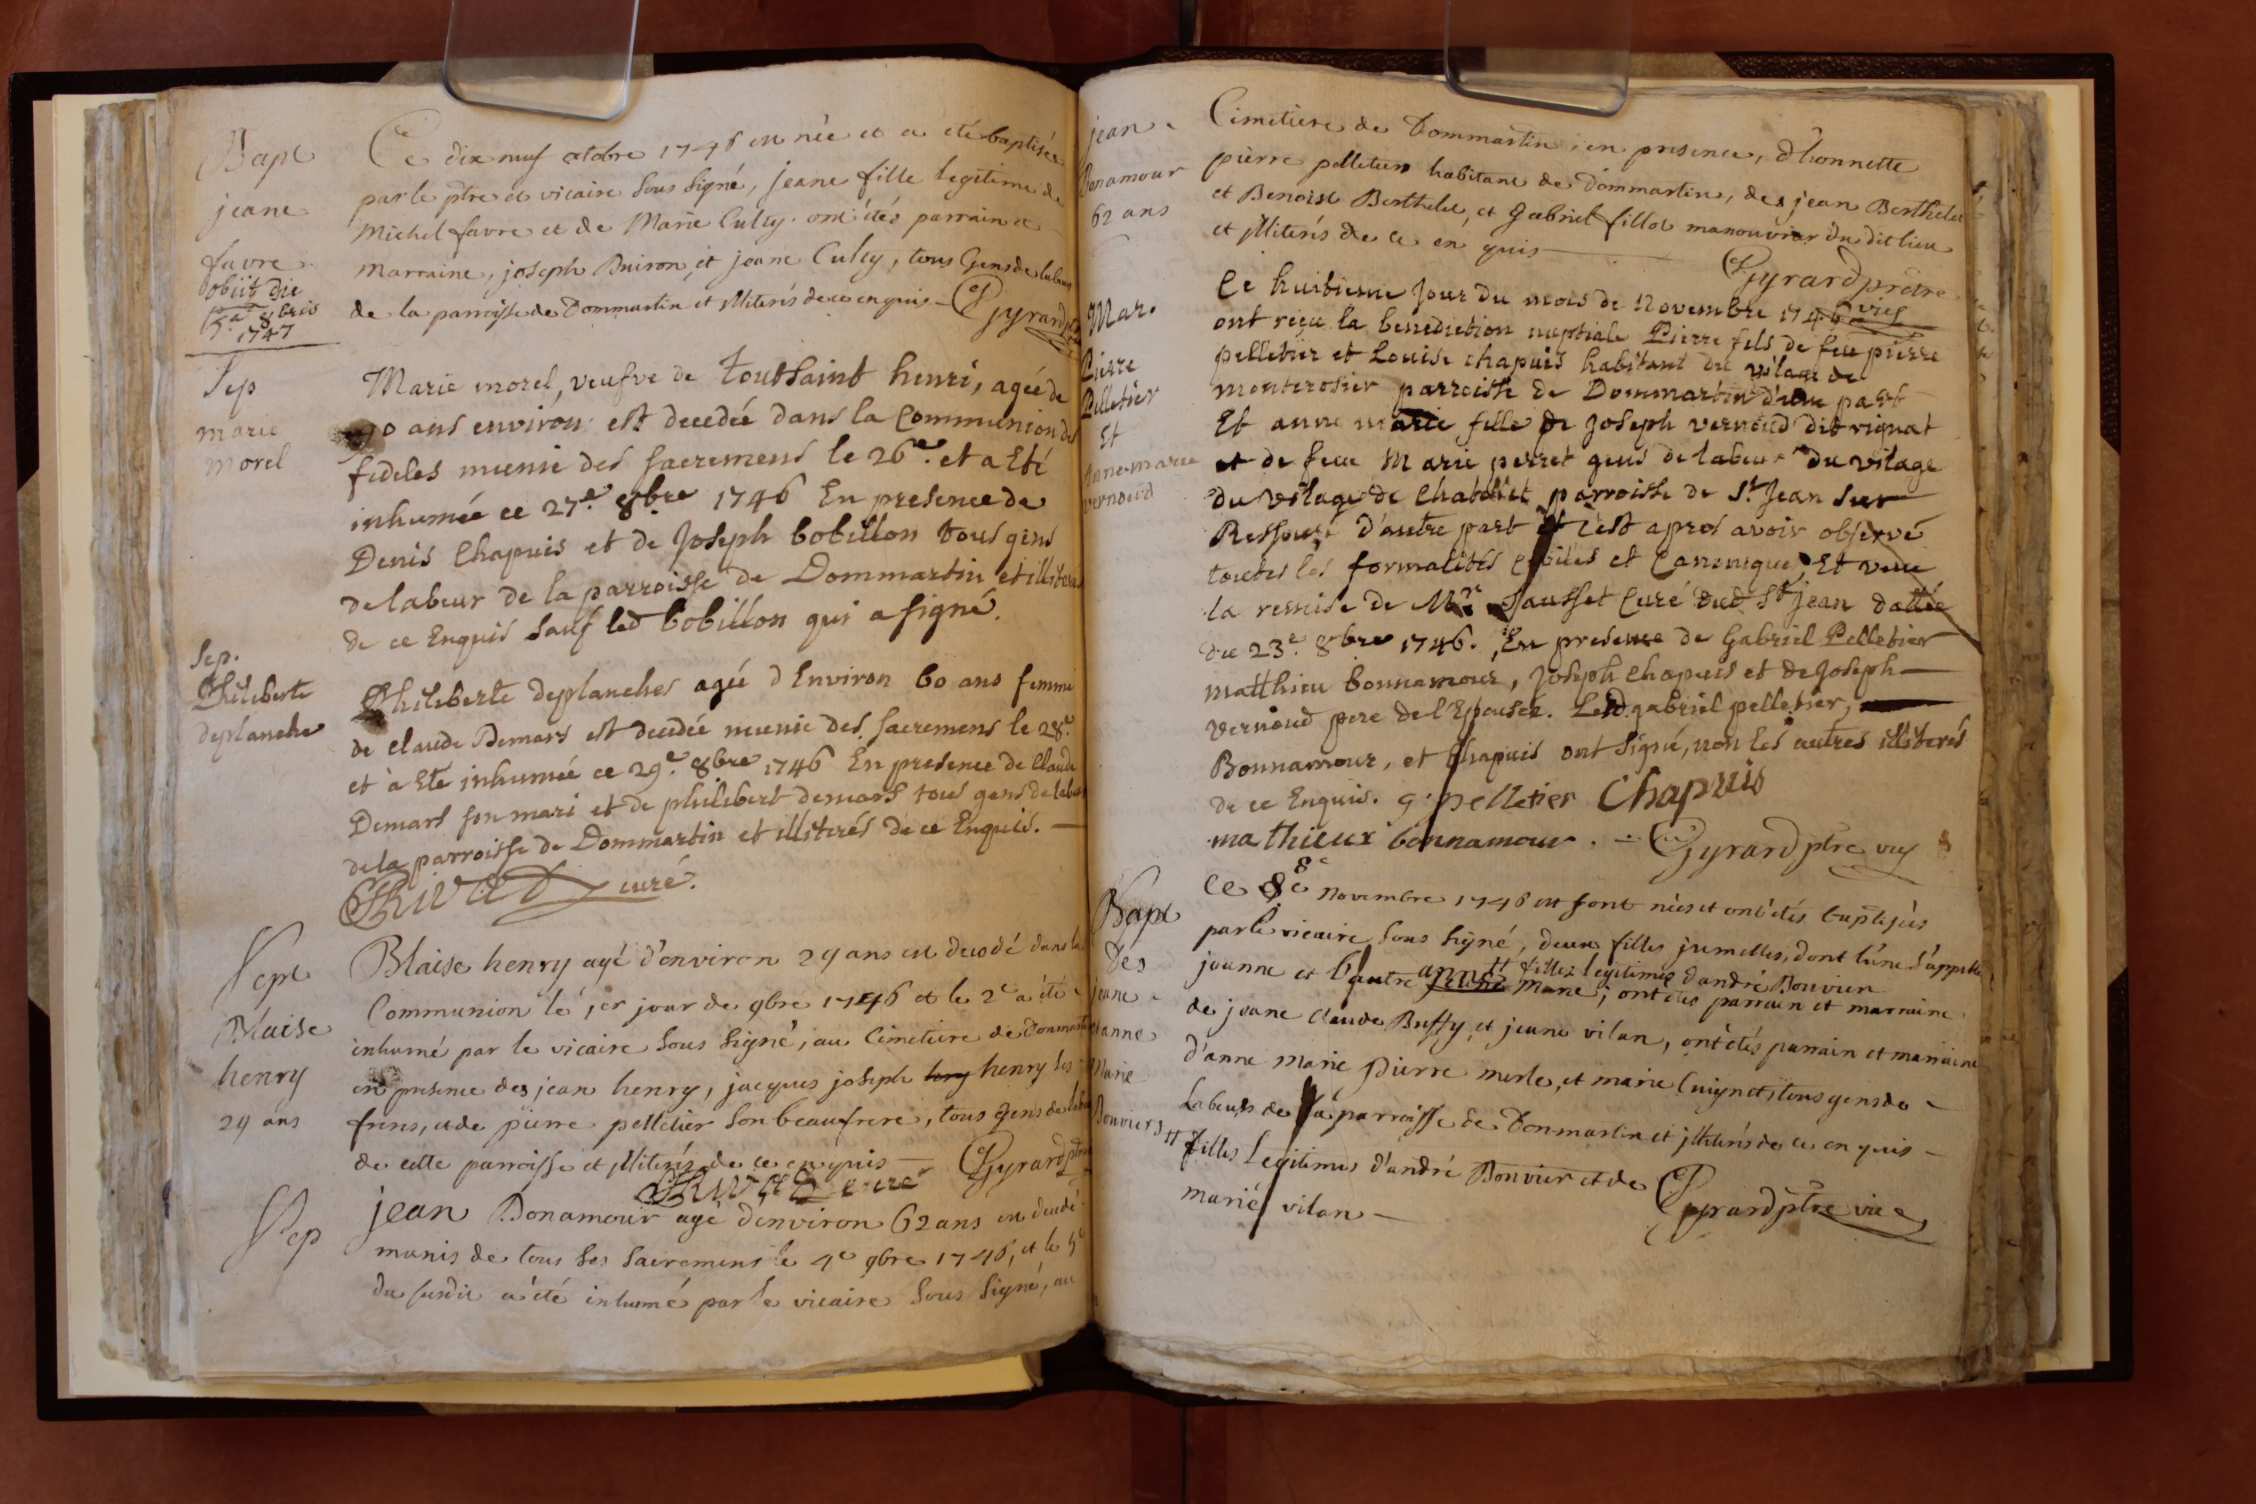 Bapt
jeane
favre
obiit die
5.a 8bris
1747
Ce dix neuf octobre 1746 est née et a eté baptisée
par le ptre et vicaire sous signé, jeane fille legitime de
Michel favre et de Marie Culty. ont étés parrain et
marraine, joseph Buiron, et jeane Culty, tous Gens de labeur
de la parroisse de Dommartin et illiterés de ce enquis - Gyrard ptre
Sep
marie
morel
Marie morel, veufve de Toussaint henri, agée de
70 ans environ est decedée dans la Communion des
fideles munie des sacremens le 26.e et a Eté
inhumée ce 27.e 8bre 1746 En presence de
Denis Chapuis et de Joseph bobillon tous gens
de labeur de la parroisse de Dommartin et illiterés
de ce Enquis sauf led bobillon qui a signé.
Sep.
Philiberte
deplanche
Philiberte deplanches agée d Environ 60 ans femme
de Claude Demars est decedée munie des sacremens le 28.e
et à Ete inhumée ce 29.e 8bre 1746 En presence de Claude
Demars son mari et de philibert demars tous gens de labeur
de la parroisse de Dommartin et illiterés de ce Enquis. —
curé.
Sept
Blaise
henry
29 ans
Blaise henry agé d'environ 29 ans est decedé dans la
Communion le 1er jour de 9bre 1746 et le 2e a été
inhumé par le vicaire sous signé, au Cimetiere de Dommartin
en presence des jean henry, jacques joseph henry ses
freres, et de pierre pelletier son beaufrere, tous gens de labeur
de cette parroisse et illiterés de ce enquis — Gyrard ptre
curé
Sep
jean Bonamour agé d'environ 62 ans est decedé
munis de tous ses sacremens le 4e 9bre 1746, et le 5e
du susdit a été inhumé par le vicaire sous signé, au
jean
Bonamour
62 ans
Cimetiere de Dommartin, en presence, d'honnette
pierre pelletier habitant de Dommartin, des jean Berthelet
et Benoist Berthelet, et Gabriel fillot manouvrier du dit lieu
et illiterés de ce en quis —
Gyrard prêtre
vic
Mar.
Pierre
Pelletier
Et
Anne-marie
vernoud
Ce huitieme Jour du mois de Novembre 1746
ont reçu la benediction nuptiale Pierre fils de feu pierre
pelletier et Louise chapuis habitant du vilage de
monterosier parroisse de Dommartin d'une part
Et anne marie fille de Joseph vernoud dit vignat
et de feue Marie perret gens de labeur du vilage
du vilage de Chatelet parroisse de St Jean sur
Ressouze d'autre part et c'est apres avoir observé
toutes les formalités civiles et Canonique, Et veue
la remise de Mre Sausset Curé dud St Jean dattée
du 23.e 8bre 1746. En presence de Gabriel Pelletier
matthieu bonnamour, Joseph Chapuis et de Joseph —
vernoud pere de l'Epousée. Lesd. gabriel pelletier,
Bonnamour, et Chapuis ont signé, non les autres illiterés
de ce Enquis. g. pelletier Chapuis
mathieux bonnamour. - Gyrard ptre vic
Bapt
des
jeane
et anne
Marie
Bonviers
Ce 8e novembre 1746 et sont nées et ont étés baptisées
par le vicaire sous signé, deux filles jumelles, dont l'une s'appelle
jeanne et l'autre anne marie, filles legitimes d'andré Bonvier
ont étés parrain et marraine
de jeane Claude Buffy, et jeane vilan, ont étés parrain et marraine
d'anne marie Pierre merle, et marie Cuignet, tous gens de
labeurs de la parroisse de Dommartin et illiterés de ce en quis -
filles legitimes d'andré Bonvier et de
marie vilan —
Gyrard ptre vic